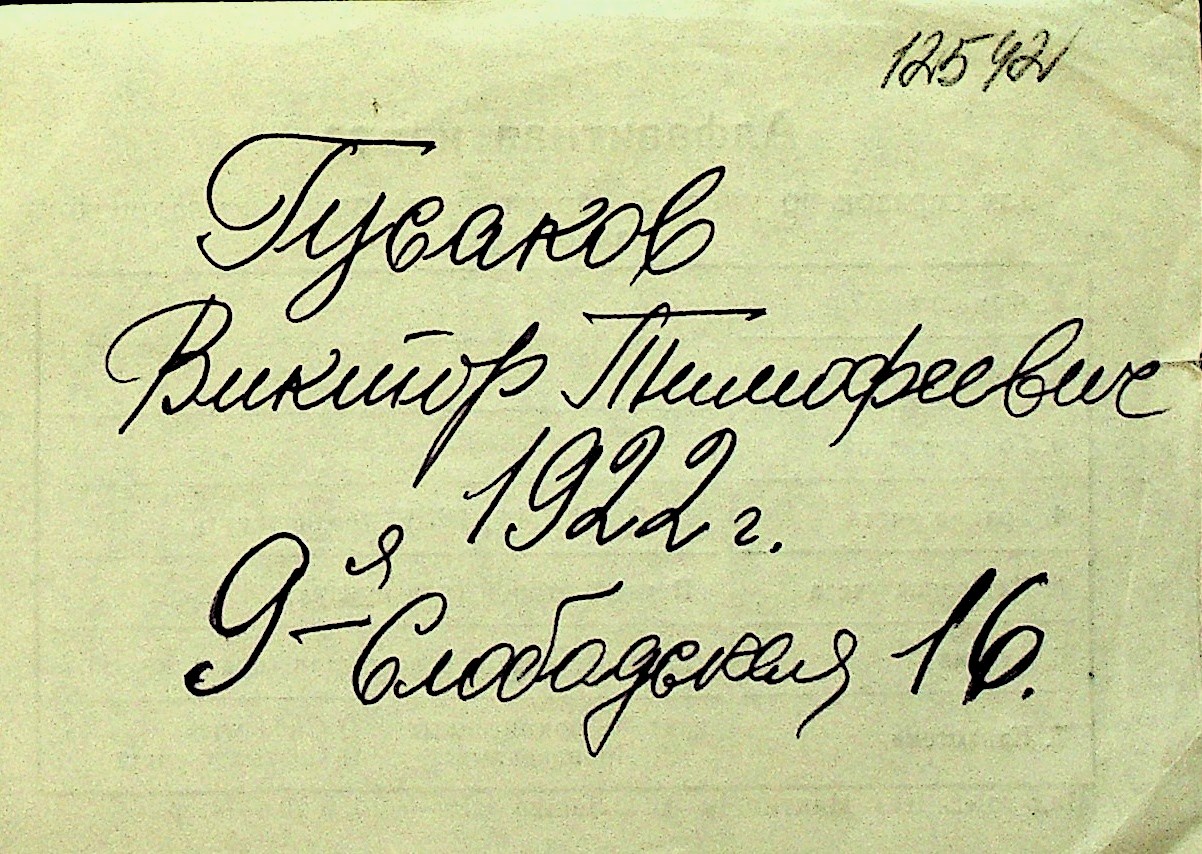 12542
Гусаков
Виктор Тимофеевич
1922 г.
9-я Слободская 16.